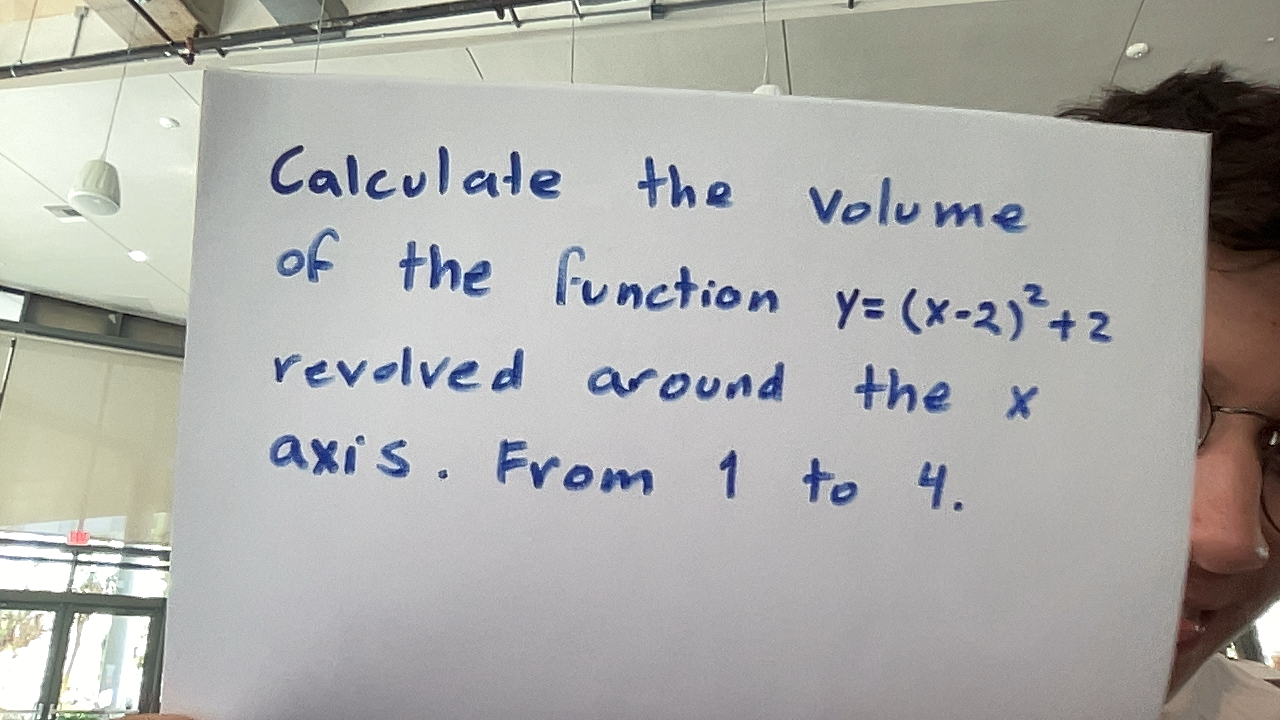 Calculate the volume
of the function y=(x-2)²+2
revolved around the x
axis. From 1 to 4.